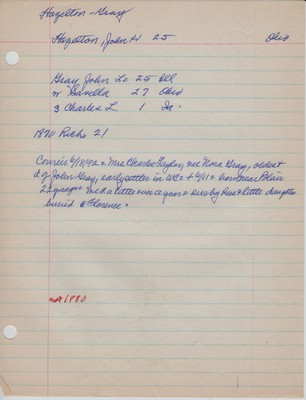 Hazelton - Gray
Hazelton, John H. 25 Ohio
Gray, John L = 25 Ill
w Marilla 27 Ohio
3 Charles L 1 In.
1870 Rich 21
Courier 6/18/92 = Mrs Charles Taylor, nee Nora Gray, oldest
d of John Gray, early settler in WC = + 6/11 = born near Blair
22 yrs ago = md a little over a year = surv by hus + little daughter
buried @ Florence =